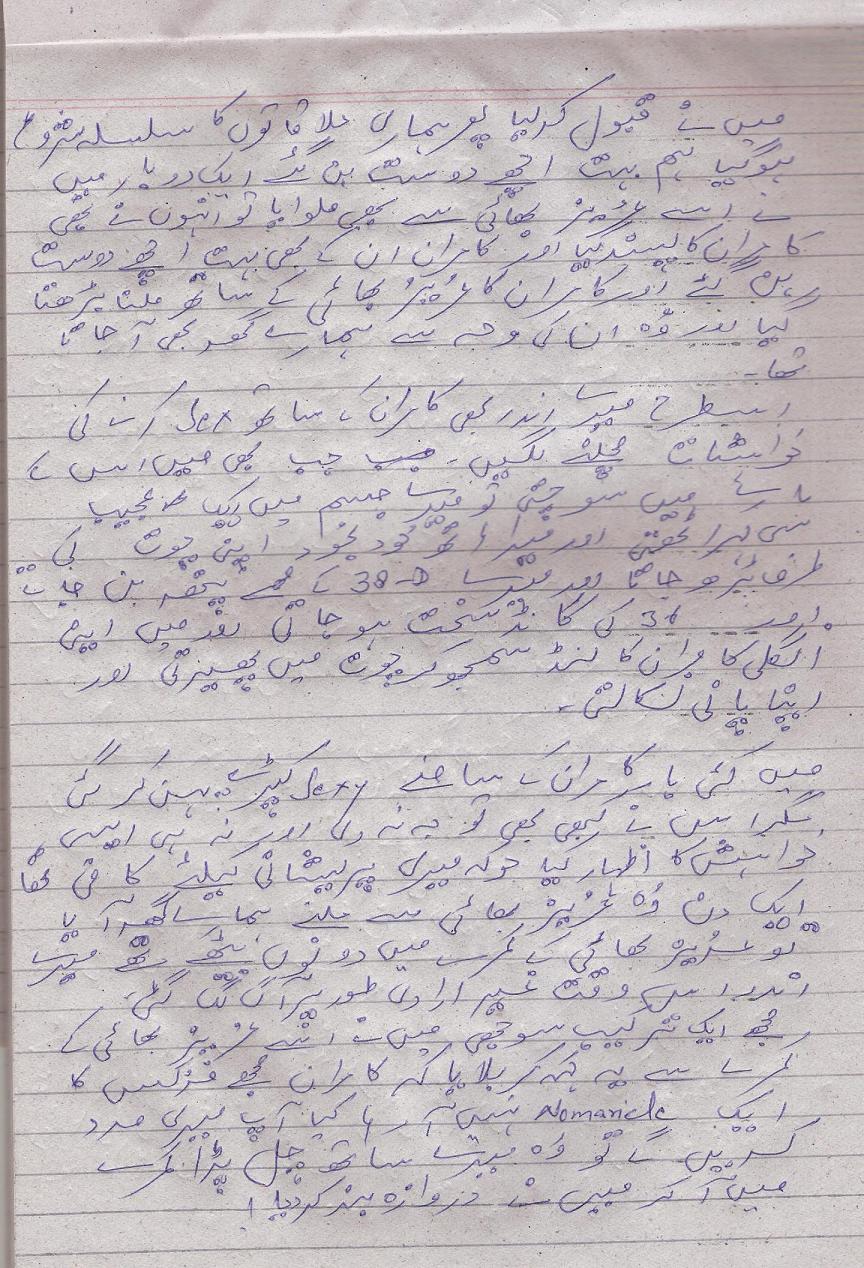 میں نے قبول کرلیا پھر ہماری ملاقاتوں کا سلسلہ شروع
ہوگیا ہم بہت اچھے دوست بن گئے ایک دو بار میں
نے اسے عزیز بھائی سے بھی ملوایا تو انہوں نے بھی
کامران کا پسند کیا اور کامران ان کے بھی بہت اچھے دوست
بن گئے اور کامران کا عزیز بھائی کے ساتھ ملنا بڑھتا
گیا اور وہ ان کی وجہ سے ہمارے گھر بھی آ جاتا
تھا۔
اسطرح میرے اندر بھی کامران کے ساتھ Sex کرنے کی
خواہشات مچلنے لگیں۔ جب جب بھی میں اس کے
بارے میں سوچتی تو میرے جسم میں ایک عجیب
سی لہر اٹھتی اور میرا ہاتھ خود بخود اپنی چوت کی
طرف بڑھ جاتا اور میرے 38-D کے ممے پتھر بن جاتے
اور 36 کی گانڈ سخت ہو جاتی اور میں اپنی
انگلی کامران کا لنڈ سمجھ کر چوت میں پھیرتی اور
اپنا پانی نکالتی۔
میں کئی بار کامران کے سامنے Sexy کپڑے پہن کر گئی
مگر اس نے کبھی بھی توجہ نہ دی اور نہ ہی ایسی
خواہش کا اظہار کیا جوکہ میری پریشانی کیلئے کافی تھا
ایک دن وہ عزیز بھائی سے ملنے ہمارے گھر آیا
تو عزیز بھائی کے کمرے میں دونوں بیٹھے تھے میرے
اندر اس وقت غیر ارادی طور پر آگ لگ گئی،
مجھے ایک ترکیب سوجھی میں نے اسے عزیز بھائی کے
کمرے سے یہ کہہ کر بلایا کہ کامران مجھے فزکس کا
ایک Nomaricle نہیں آ رہا کیا آپ میری مدد
کریں گے تو وہ میرے ساتھ چل پڑا کمرے
میں آ کر میں نے دروازہ بند کردیا!